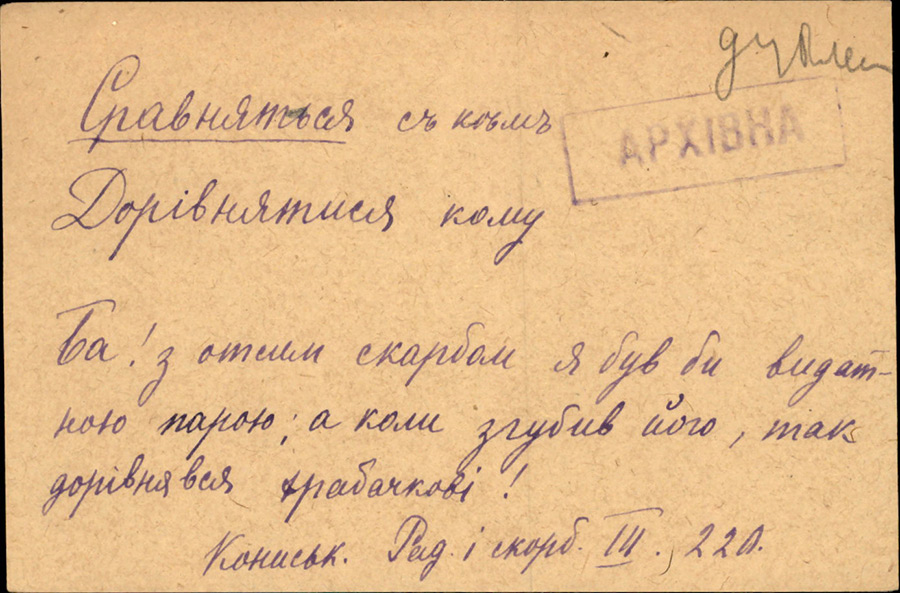 дублет
Сравняться съ кѣмъ
АРХІВНА
Дорівнятися кому
Ба! з отсим скарбом я був би видат-
ною парою; а коли згубив його, так
дорівнявся храбачкові!
Кониськ. Рад. і скорб. III.,